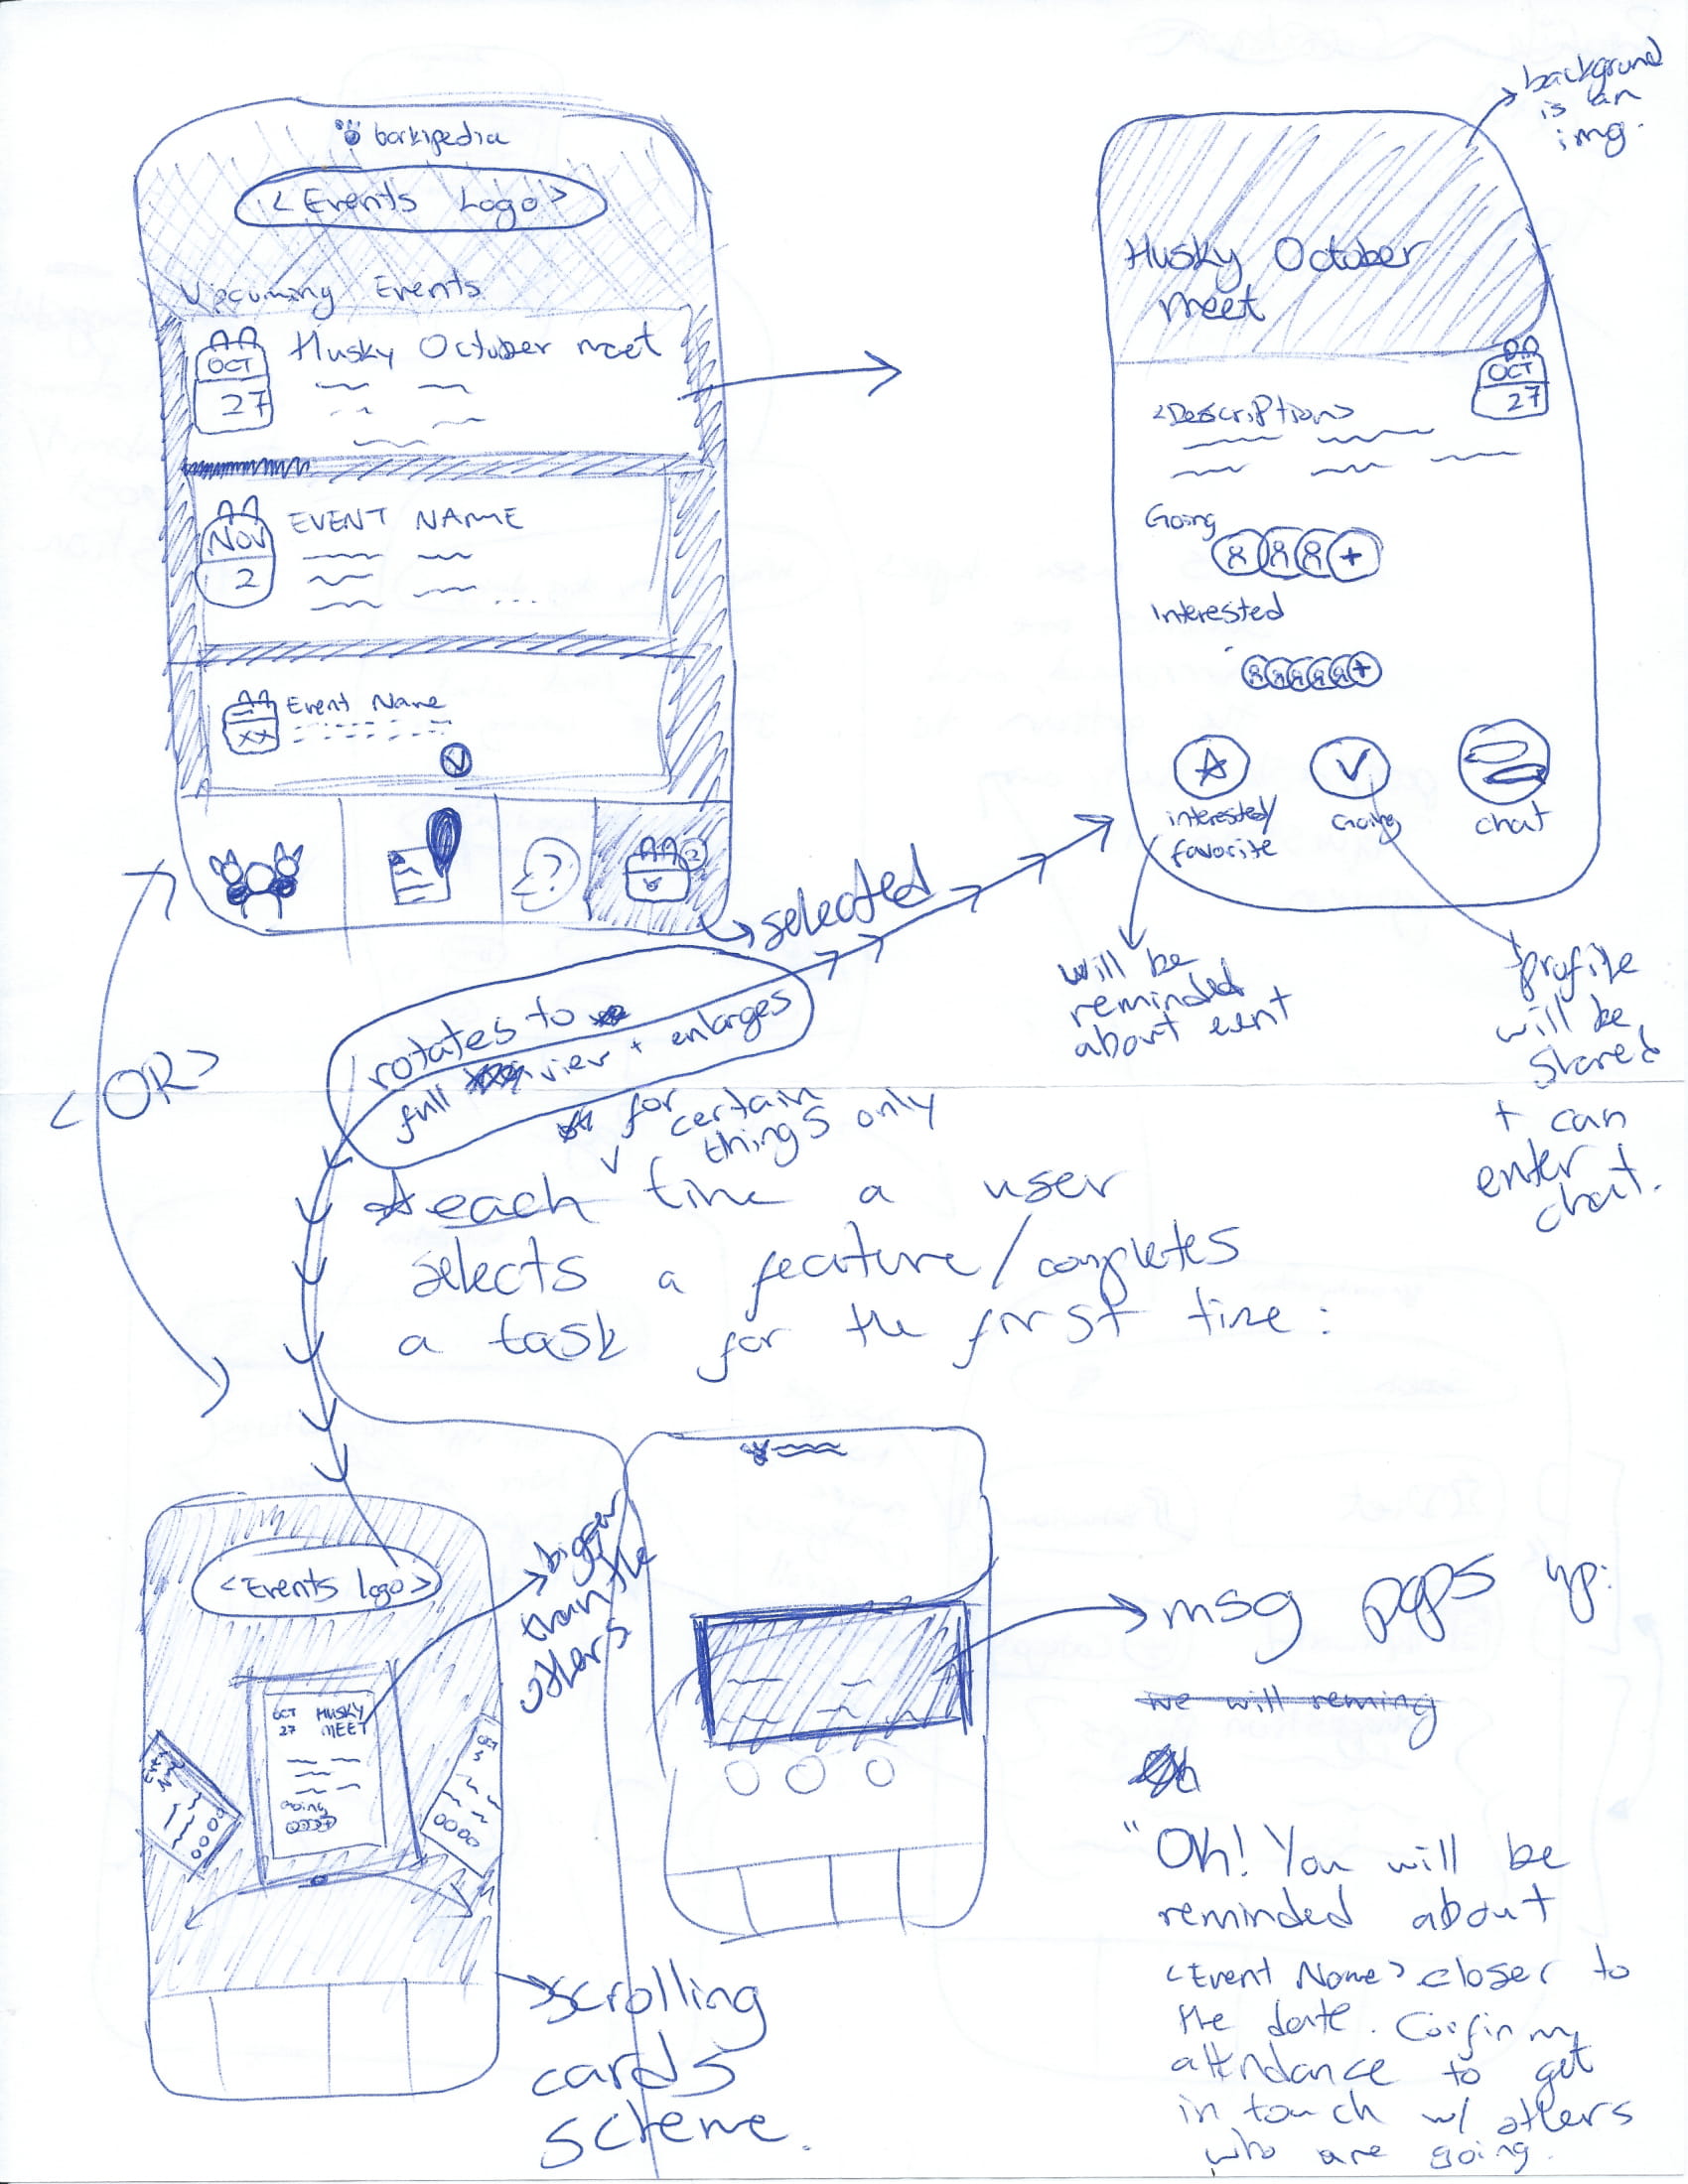 barkipedia
<Events Logo>
Upcoming Events
OCT
27
Husky October meet
NOV
2
EVENT NAME
XX
Event Name
?
2
selected
background
is an
img.
Husky October
meet
OCT
27
<Description>
Going
+
Interested
+
interested/
favorite
Going
chat
will be
reminded
about event
profile
will be
shared
+ can
enter
chat.
<OR>
rotates to
full view + enlarges
for certain
things only
each time a user
selects a feature/completes
a task for the first time:
<Events logo>
OCT HUSKY
27 MEET
Going
bigger
than the
others
scrolling
cards
scheme.
msg pops up:
we will reming
"Oh! You will be
reminded about
<Event Name> closer to
the date. Confirm
attendance to get
in touch w/ others
who are going.